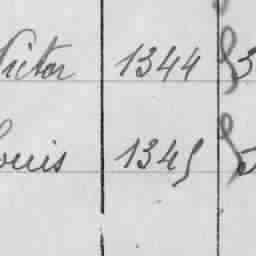 Victor 1344 3
Louis 1345